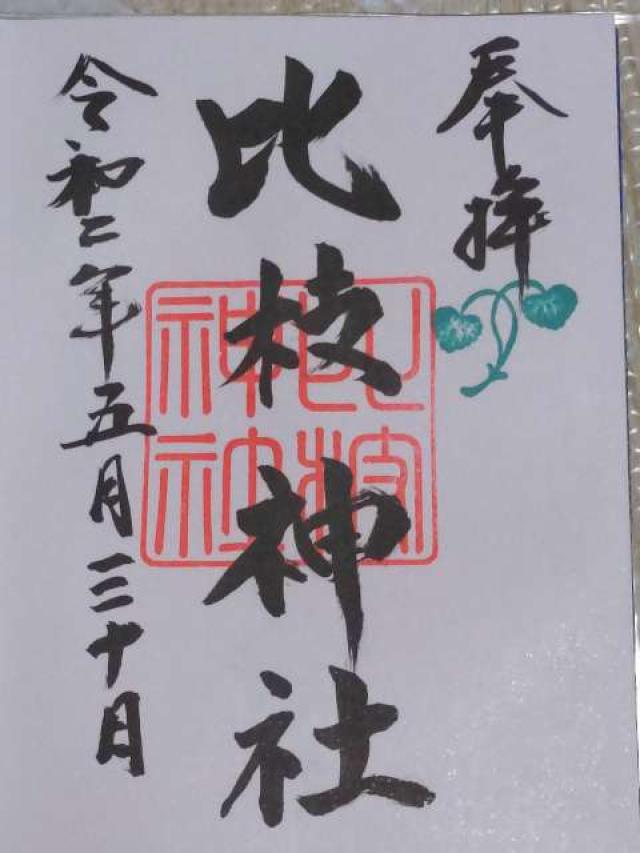 奉拝
比枝神社
比枝神社
令和二年五月三十日